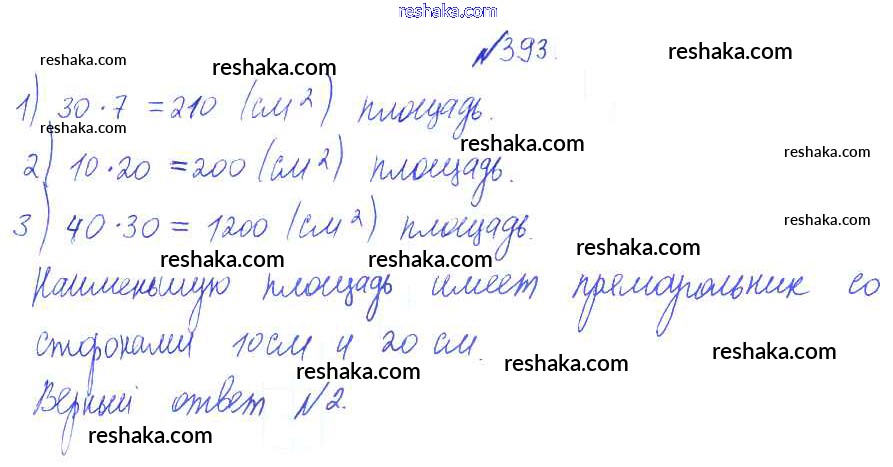 reshaka.com
№393.
reshaka.com reshaka.com reshaka.com
1) 30 · 7 = 210 (см²) площадь.
reshaka.com reshaka.com reshaka.com
2) 10 · 20 = 200 (см²) площадь.
reshaka.com reshaka.com
3) 40 · 30 = 1200 (см²) площадь.
reshaka.com reshaka.com reshaka.com
Наименьшую площадь имеет прямоугольник со
сторонами 10 см и 20 см.
reshaka.com reshaka.com reshaka.com
Верный ответ №2.
reshaka.com